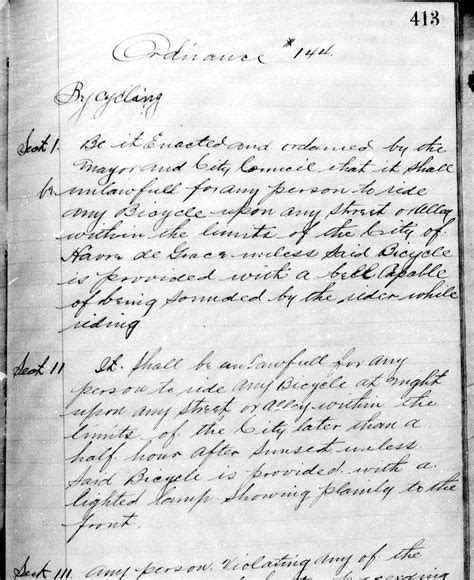 413
Ordinance # 144.
Bycycling
Sect 1. Be it Enacted and ordained by the
Mayor and City Council that it shall
be unlawfull for any person to ride
any Bicycle upon any Street or Alley
within the limits of the City of
Havre de Grace unless Said Bicycle
is provided with a bell Capable
of being sounded by the rider while
riding
Sect II It Shall be unlawfull for any
person to ride any Bicycle at night
upon any Street or Alley within the
limits of the City later than a
half hour after Sunset unless
Said Bicycle is provided with a
lighted lamp Showing plainly to the
front.
Sect III any person Violating any of the